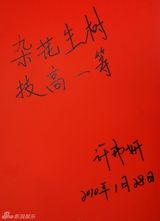 杂花生树
技高一筹
许玮甯
2010年1月28日
新浪娱乐